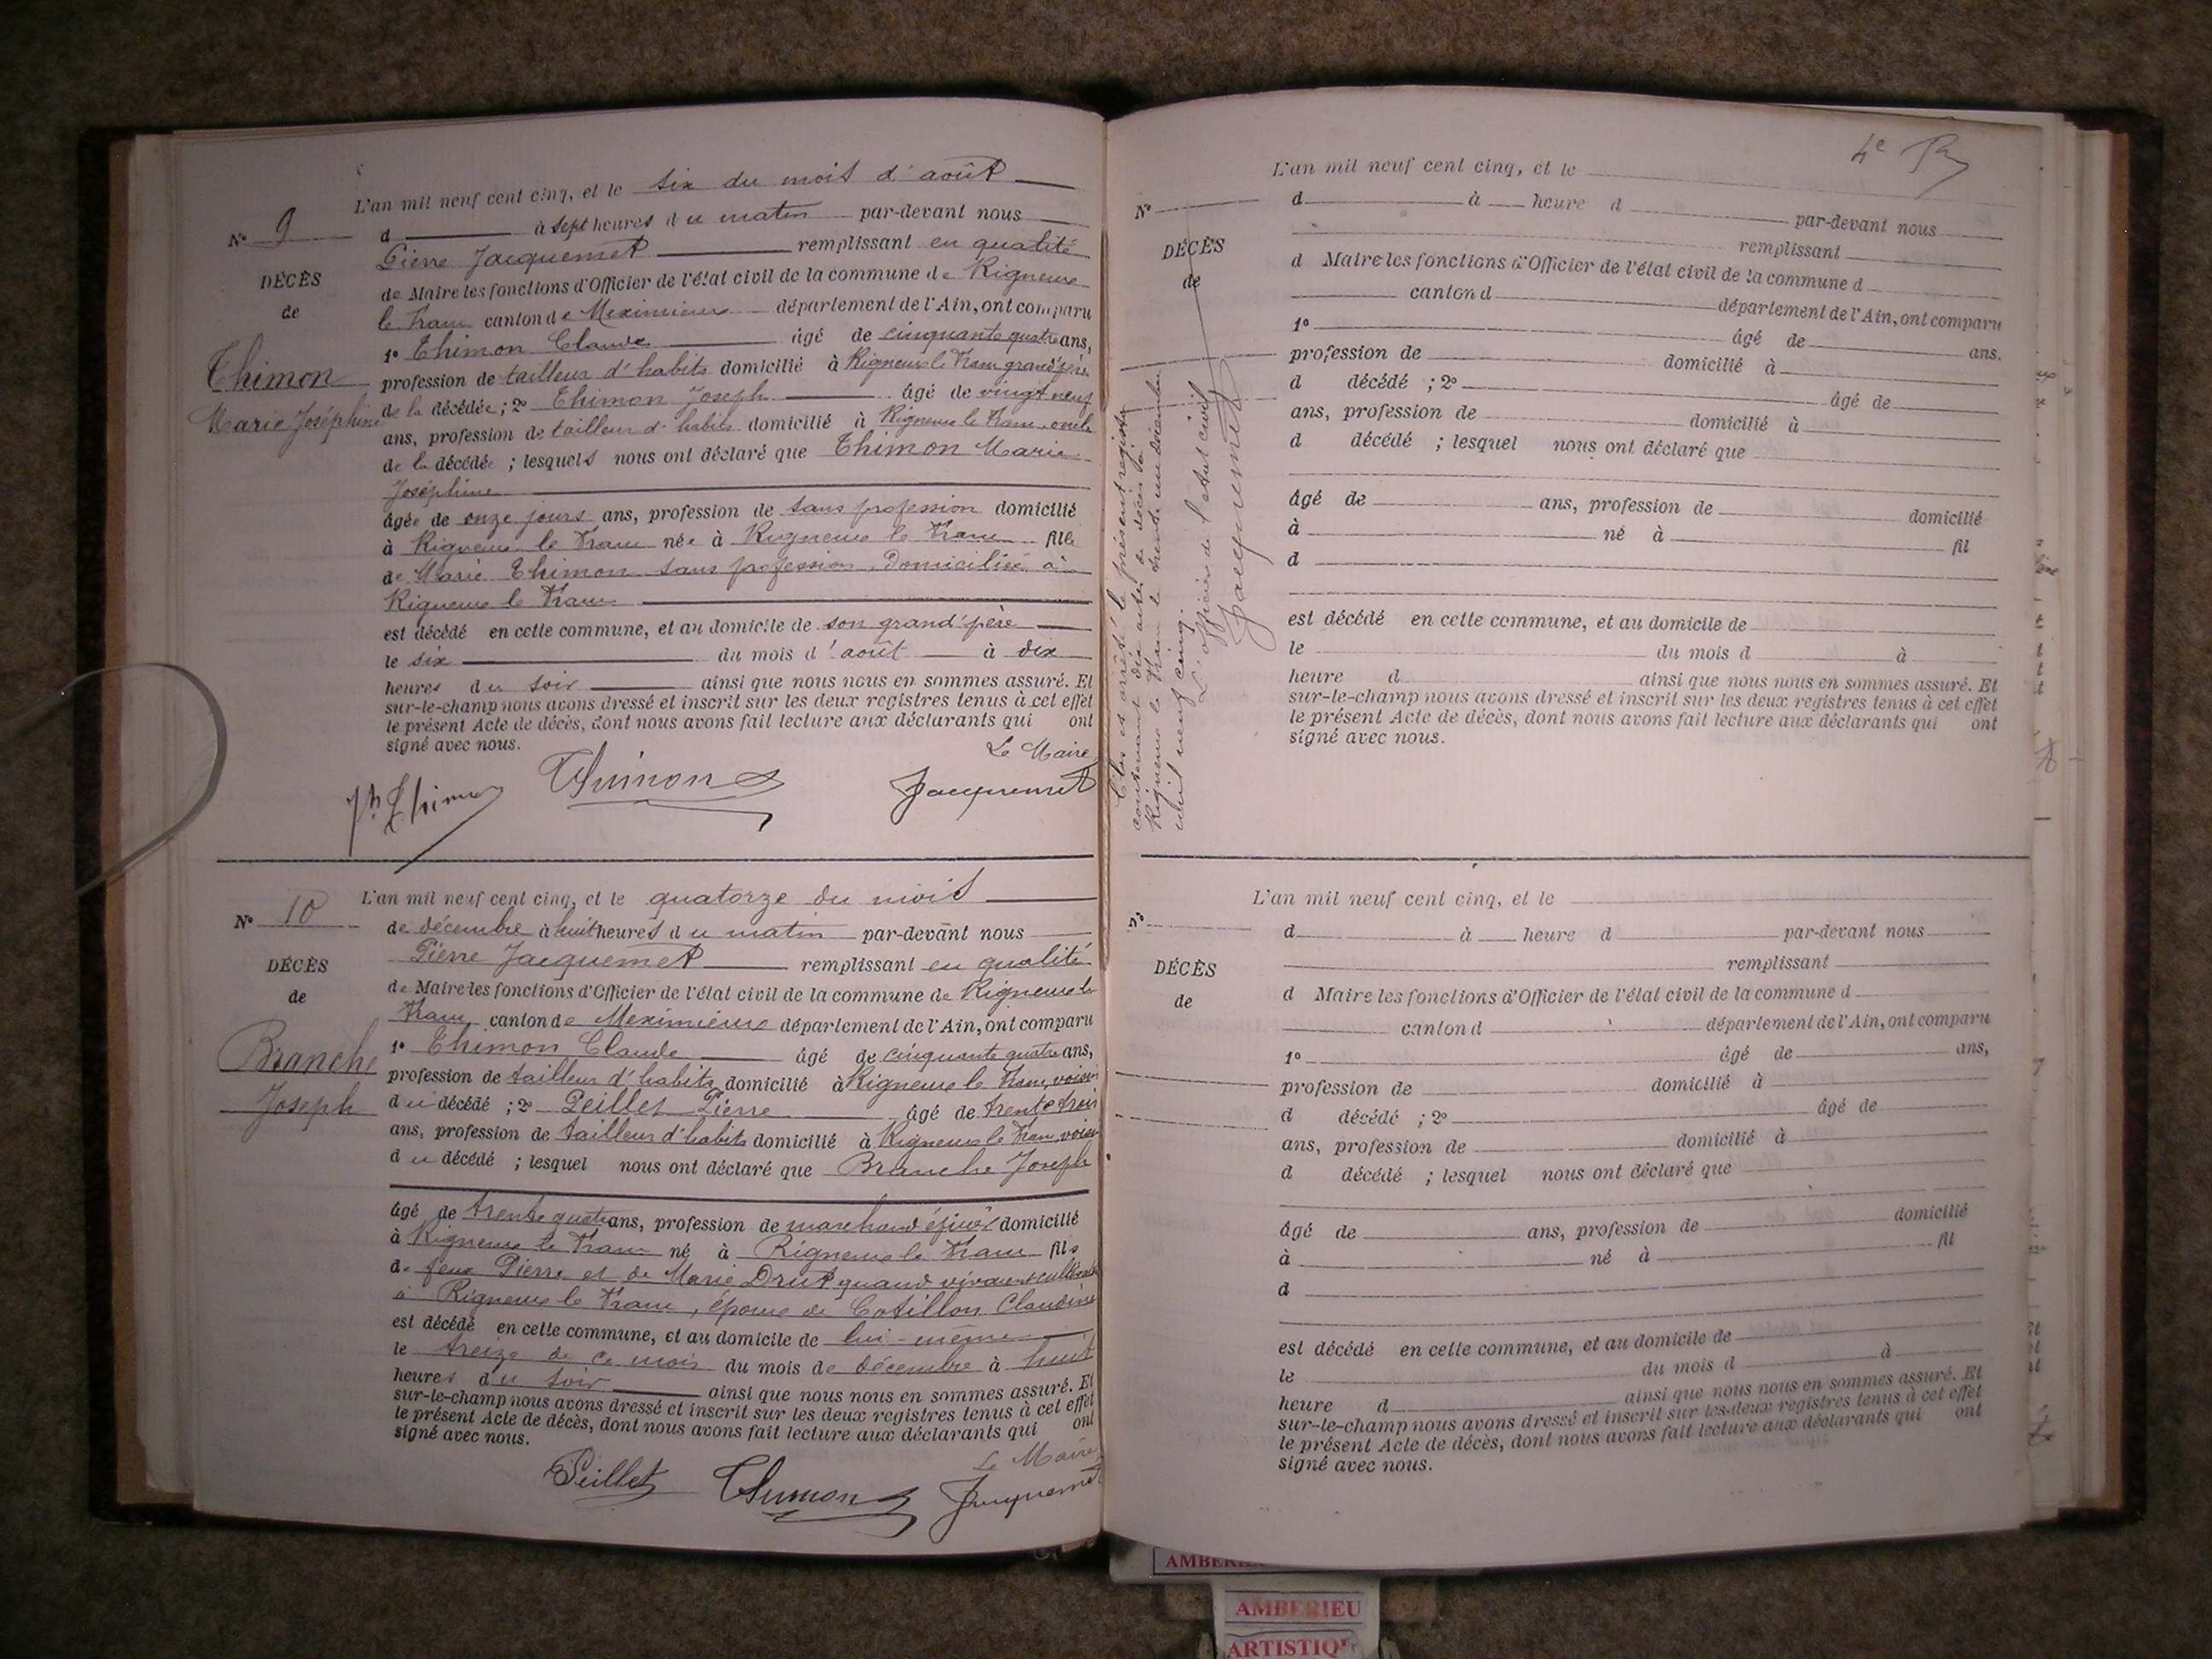 L'an mil neuf cent cinq, et le six du mois d'août
N° 9
d à sept heures du matin par-devant nous
Pierre Jacquemet remplissant en qualité
DÉCÈS
de Maire les fonctions d'Officier de l'état civil de la commune de Rigneux
de
le Franc canton de Meximieux département de l'Ain, ont comparu
1° Thimon Claude âgé de cinquante quatre ans,
Thimon
profession de tailleur d'habits domicilié à Rigneux le Franc grand'père
Marie Joséphine
de la décédée ; 2° Thimon Joseph âgé de vingt neuf
ans, profession de tailleur d'habits domicilié à Rigneux le Franc oncle
de la décédée ; lesquels nous ont déclaré que Thimon Marie
Joséphine
âgée de onze jours ans, profession de sans profession domicilié
à Rigneux le Franc née à Rigneux le Franc fille
de Marie Thimon sans profession, domiciliée à
Rigneux le Franc
est décédé en cette commune, et au domicile de son grand'père
le six du mois d'août à dix
heures du soir ainsi que nous nous en sommes assuré. Et
sur-le-champ nous avons dressé et inscrit sur les deux registres tenus à cet effet
le présent Acte de décès, dont nous avons fait lecture aux déclarants qui ont
signé avec nous.
Le Maire
Jh Thimon Thimon Jacquemet
L'an mil neuf cent cinq, et le quatorze du mois
N° 10
de décembre à huit heures du matin par-devant nous
Pierre Jacquemet remplissant en qualité
DÉCÈS
de Maire les fonctions d'Officier de l'état civil de la commune de Rigneux le
de
Franc canton de Meximieux département de l'Ain, ont comparu
Branche
1° Thimon Claude âgé de cinquante quatre ans,
profession de tailleur d'habits domicilié à Rigneux le Franc, voisin
Joseph
du décédé ; 2° Peillet Pierre âgé de trente trois
ans, profession de tailleur d'habits domicilié à Rigneux le Franc voisin
du décédé ; lesquel nous ont déclaré que Branche Joseph
âgé de trente quatre ans, profession de marchand épicier domicilié
à Rigneux le Franc né à Rigneux le Franc fils
de feux Pierre et de Marie Drut quand vivaient cultivateurs
à Rigneux le Franc, époux de Cotillon Claudine
est décédé en cette commune, et au domicile de lui-même
le treize de ce mois du mois de décembre à huit
heures du soir ainsi que nous nous en sommes assuré. Et
sur-le-champ nous avons dressé et inscrit sur les deux registres tenus à cet effet
le présent Acte de décès, dont nous avons fait lecture aux déclarants qui ont
signé avec nous.
Le Maire
Peillet Thimon Jacquemet
Clos et arrêté le présent registre
contenant dix actes de décès à
Rigneux le Franc le trente un décembre
mil neuf cinq.
L'officier de l'état civil
Jacquemet
4e
L'an mil neuf cent cinq, et le
N°
d à heure d par-devant nous
remplissant
DÉCÈS
d Maire les fonctions d'Officier de l'état civil de la commune d
de
canton d département de l'Ain, ont comparu
1° âgé de ans.
profession de domicilié à
d décédé ; 2° âgé de
ans, profession de domicilié à
d décédé ; lesquel nous ont déclaré que
âgé de ans, profession de domicilié
à né à fil
d
est décédé en cette commune, et au domicile de
le du mois d à
heure d ainsi que nous nous en sommes assuré. Et
sur-le-champ nous avons dressé et inscrit sur les deux registres tenus à cet effet
le présent Acte de décès, dont nous avons fait lecture aux déclarants qui ont
signé avec nous.
L'an mil neuf cent cinq, et le
N°
d à heure d par-devant nous
remplissant
DÉCÈS
d Maire les fonctions d'Officier de l'état civil de la commune d
de
canton d département de l'Ain, ont comparu
1° âgé de ans,
profession de domicilié à
d décédé ; 2° âgé de
ans, profession de domicilié à
d décédé ; lesquel nous ont déclaré que
âgé de ans, profession de domicilié
à né à fil
d
est décédé en cette commune, et au domicile de
le du mois d à
heure d ainsi que nous nous en sommes assuré. Et
sur-le-champ nous avons dressé et inscrit sur les deux registres tenus à cet effet
le présent Acte de décès, dont nous avons fait lecture aux déclarants qui ont
signé avec nous.
AMBERIEU
ARTISTIQ